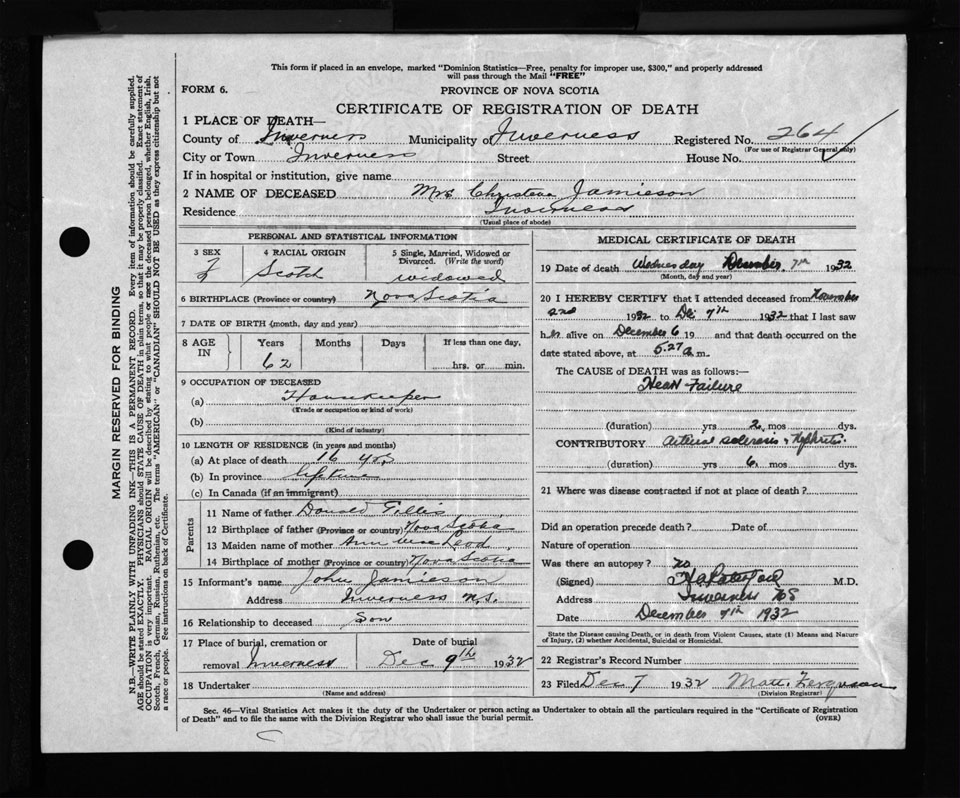 This form if placed in an envelope, marked "Dominion Statistics—Free, penalty for improper use, $300," and properly addressed
will pass through the Mail "FREE"
FORM 6.
PROVINCE OF NOVA SCOTIA
CERTIFICATE OF REGISTRATION OF DEATH
1 PLACE OF DEATH—
County of Inverness Municipality of Inverness Registered No. 264
(For use of Registrar General only)
City or Town Inverness Street House No.
If in hospital or institution, give name
2 NAME OF DECEASED Mrs. Christena Jamieson
Residence Inverness
(Usual place of abode)
PERSONAL AND STATISTICAL INFORMATION
3 SEX F
4 RACIAL ORIGIN Scotch
5 Single, Married, Widowed or
Divorced. (Write the word)
widowed
6 BIRTHPLACE (Province or country) Nova Scotia
7 DATE OF BIRTH (month, day and year)
8 AGE IN
Years Months Days If less than one day,
62 hrs. or min.
9 OCCUPATION OF DECEASED
(a) Housekeeper
(Trade or occupation or kind of work)
(b)
(Kind of industry)
10 LENGTH OF RESIDENCE (in years and months)
(a) At place of death 16 yrs
(b) In province lifetime
(c) In Canada (if an immigrant)
Parents
11 Name of father Donald Gillis
12 Birthplace of father (Province or country) Nova Scotia
13 Maiden name of mother Ann McLeod
14 Birthplace of mother (Province or country) Nova Scotia
15 Informant's name John Jamieson
Address Inverness N.S.
16 Relationship to deceased Son
17 Place of burial, cremation or
removal Inverness
Date of burial
Dec 9th 1932
18 Undertaker
(Name and address)
MEDICAL CERTIFICATE OF DEATH
19 Date of death Wednesday December 7th 1932
(Month, day and year)
20 I HEREBY CERTIFY that I attended deceased from November
2nd 1932 to Dec 7th 1932 that I last saw
her alive on December 6 19 and that death occurred on the
date stated above, at 5.27 a.m.
The CAUSE of DEATH was as follows:—
Heart Failure
(duration) yrs 2 mos dys.
CONTRIBUTORY Arterial sclerosis & Nephritis
(duration) yrs 6 mos dys.
21 Where was disease contracted if not at place of death?
Did an operation precede death? Date of
Nature of operation
Was there an autopsy? no
(Signed) M.D.
Address Inverness NS
Date December 7th 1932
State the Disease causing Death, or in death from Violent Causes, state (1) Means and Nature
of Injury, (2) whether Accidental, Suicidal or Homicidal.
22 Registrar's Record Number
23 Filed Dec 7 1932 Matt. Ferguson
(Division Registrar)
Sec. 46—Vital Statistics Act makes it the duty of the Undertaker or person acting as Undertaker to obtain all the particulars required in the "Certificate of Registration
of Death" and to file the same with the Division Registrar who shall issue the burial permit.
(OVER)
MARGIN RESERVED FOR BINDING
N.B.—WRITE PLAINLY WITH UNFADING INK—THIS IS A PERMANENT RECORD. Every item of information should be carefully supplied.
AGE should be stated EXACTLY. PHYSICIANS should STATE CAUSE OF DEATH in plain terms, so that it may be properly classified. Exact statement of
OCCUPATION is very important. RACIAL ORIGIN will be described by stating to what people or race the deceased person belonged, whether English, Irish,
Scotch, French, German, Russian, Ruthenian, etc. The terms "AMERICAN" or "CANADIAN" SHOULD NOT BE USED as they express citizenship but not
a race or people. See instructions on back of Certificate.